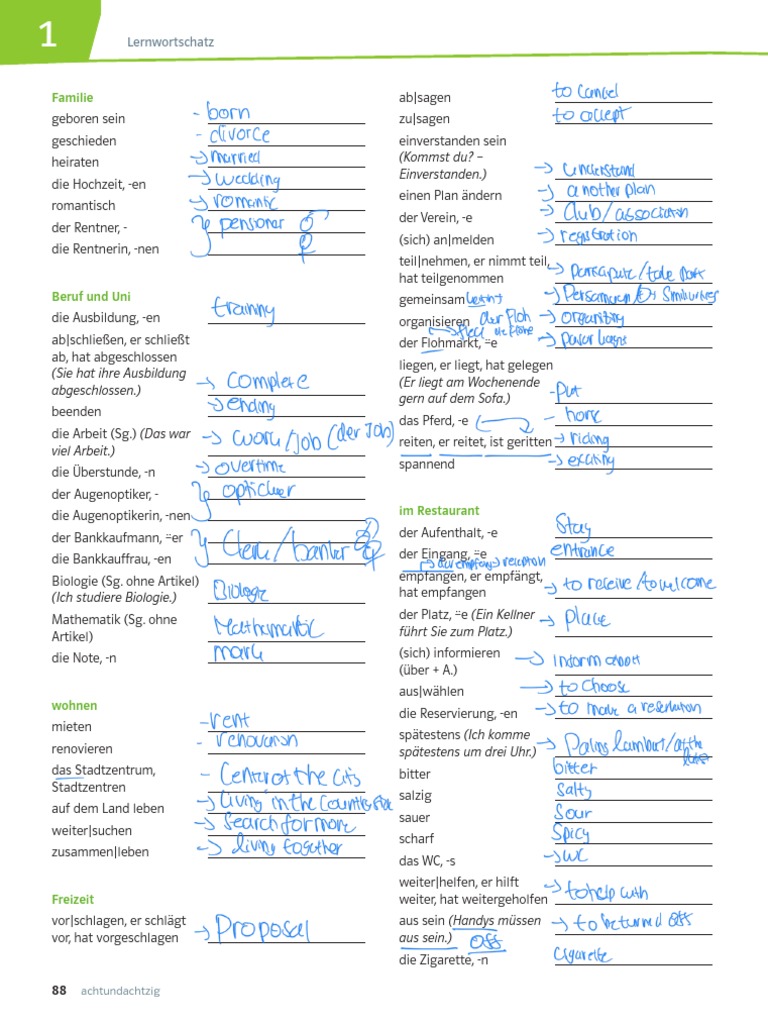 1
Lernwortschatz
Familie
geboren sein - born
geschieden - divorce
heiraten → married
die Hochzeit, -en → wedding
romantisch → romantic
der Rentner, - pensioner ♂
die Rentnerin, -nen ♀
Beruf und Uni
die Ausbildung, -en
ab|schließen, er schließt
ab, hat abgeschlossen
(Sie hat ihre Ausbildung
abgeschlossen.) → complete
beenden → ending
die Arbeit (Sg.) (Das war
viel Arbeit.) → work/job (der Job)
die Überstunde, -n → overtime
der Augenoptiker, - opticher
die Augenoptikerin, -nen
der Bankkaufmann, =er
die Bankkauffrau, -en Clerk/banker
Biologie (Sg. ohne Artikel)
(Ich studiere Biologie.)
Mathematik (Sg. ohne
Artikel)
die Note, -n mark
wohnen
mieten - rent
renovieren - renovation
das Stadtzentrum,
Stadtzentren - Center of the city
auf dem Land leben → living in the
weiter|suchen → search for more
zusammen|leben → living together
Freizeit
vor|schlagen, er schlägt
vor, hat vorgeschlagen → Proposal
88 achtundachtzig
ab|sagen to cancel
zu|sagen to accept
einverstanden sein
(Kommst du? –
Einverstanden.) → understand
einen Plan ändern → another plan
der Verein, -e → Club/association
(sich) an|melden → registration
teil|nehmen, er nimmt teil,
hat teilgenommen → /take part
gemeinsam
organisieren der Floh →
der Flohmarkt, =e
liegen, er liegt, hat gelegen
(Er liegt am Wochenende
gern auf dem Sofa.) - put
das Pferd, -e - horse
reiten, er reitet, ist geritten → riding
spannend → exciting
im Restaurant
der Aufenthalt, -e Stay
der Eingang, =e entrance
→ der empfang → reception
empfangen, er empfängt,
hat empfangen → to receive/to welcome
der Platz, =e (Ein Kellner
führt Sie zum Platz.) → place
(sich) informieren
(über + A.) → inform about
aus|wählen → to choose
die Reservierung, -en → to make a reservation
spätestens (Ich komme
spätestens um drei Uhr.) →
bitter bitter
salzig Salty
sauer Sour
scharf Spicy
das WC, -s → WC
weiter|helfen, er hilft
weiter, hat weitergeholfen → to help with
aus sein (Handys müssen
aus sein.) Off → to be turned off
die Zigarette, -n Cigarette